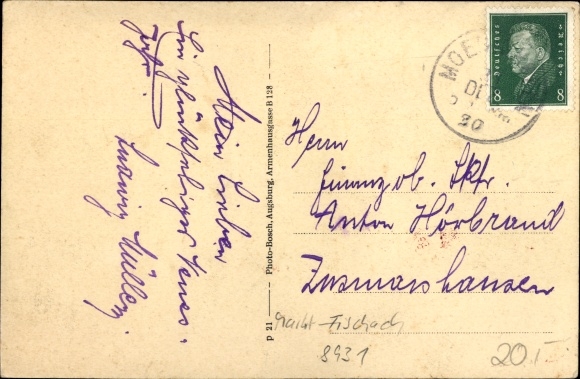 Mein Lieber
Ein glückseliges Neues-
Jahr!
Ludwig Müller.
p 21 — Photo-Bosch, Augsburg, Armenhausgasse B 128 —
Deutsches Reich
8 8
MOE
20
Herrn
Finanzob. Skr.
Anton Hörbrand
Zusmarshausen
Markt-Fischach
8931
20.-